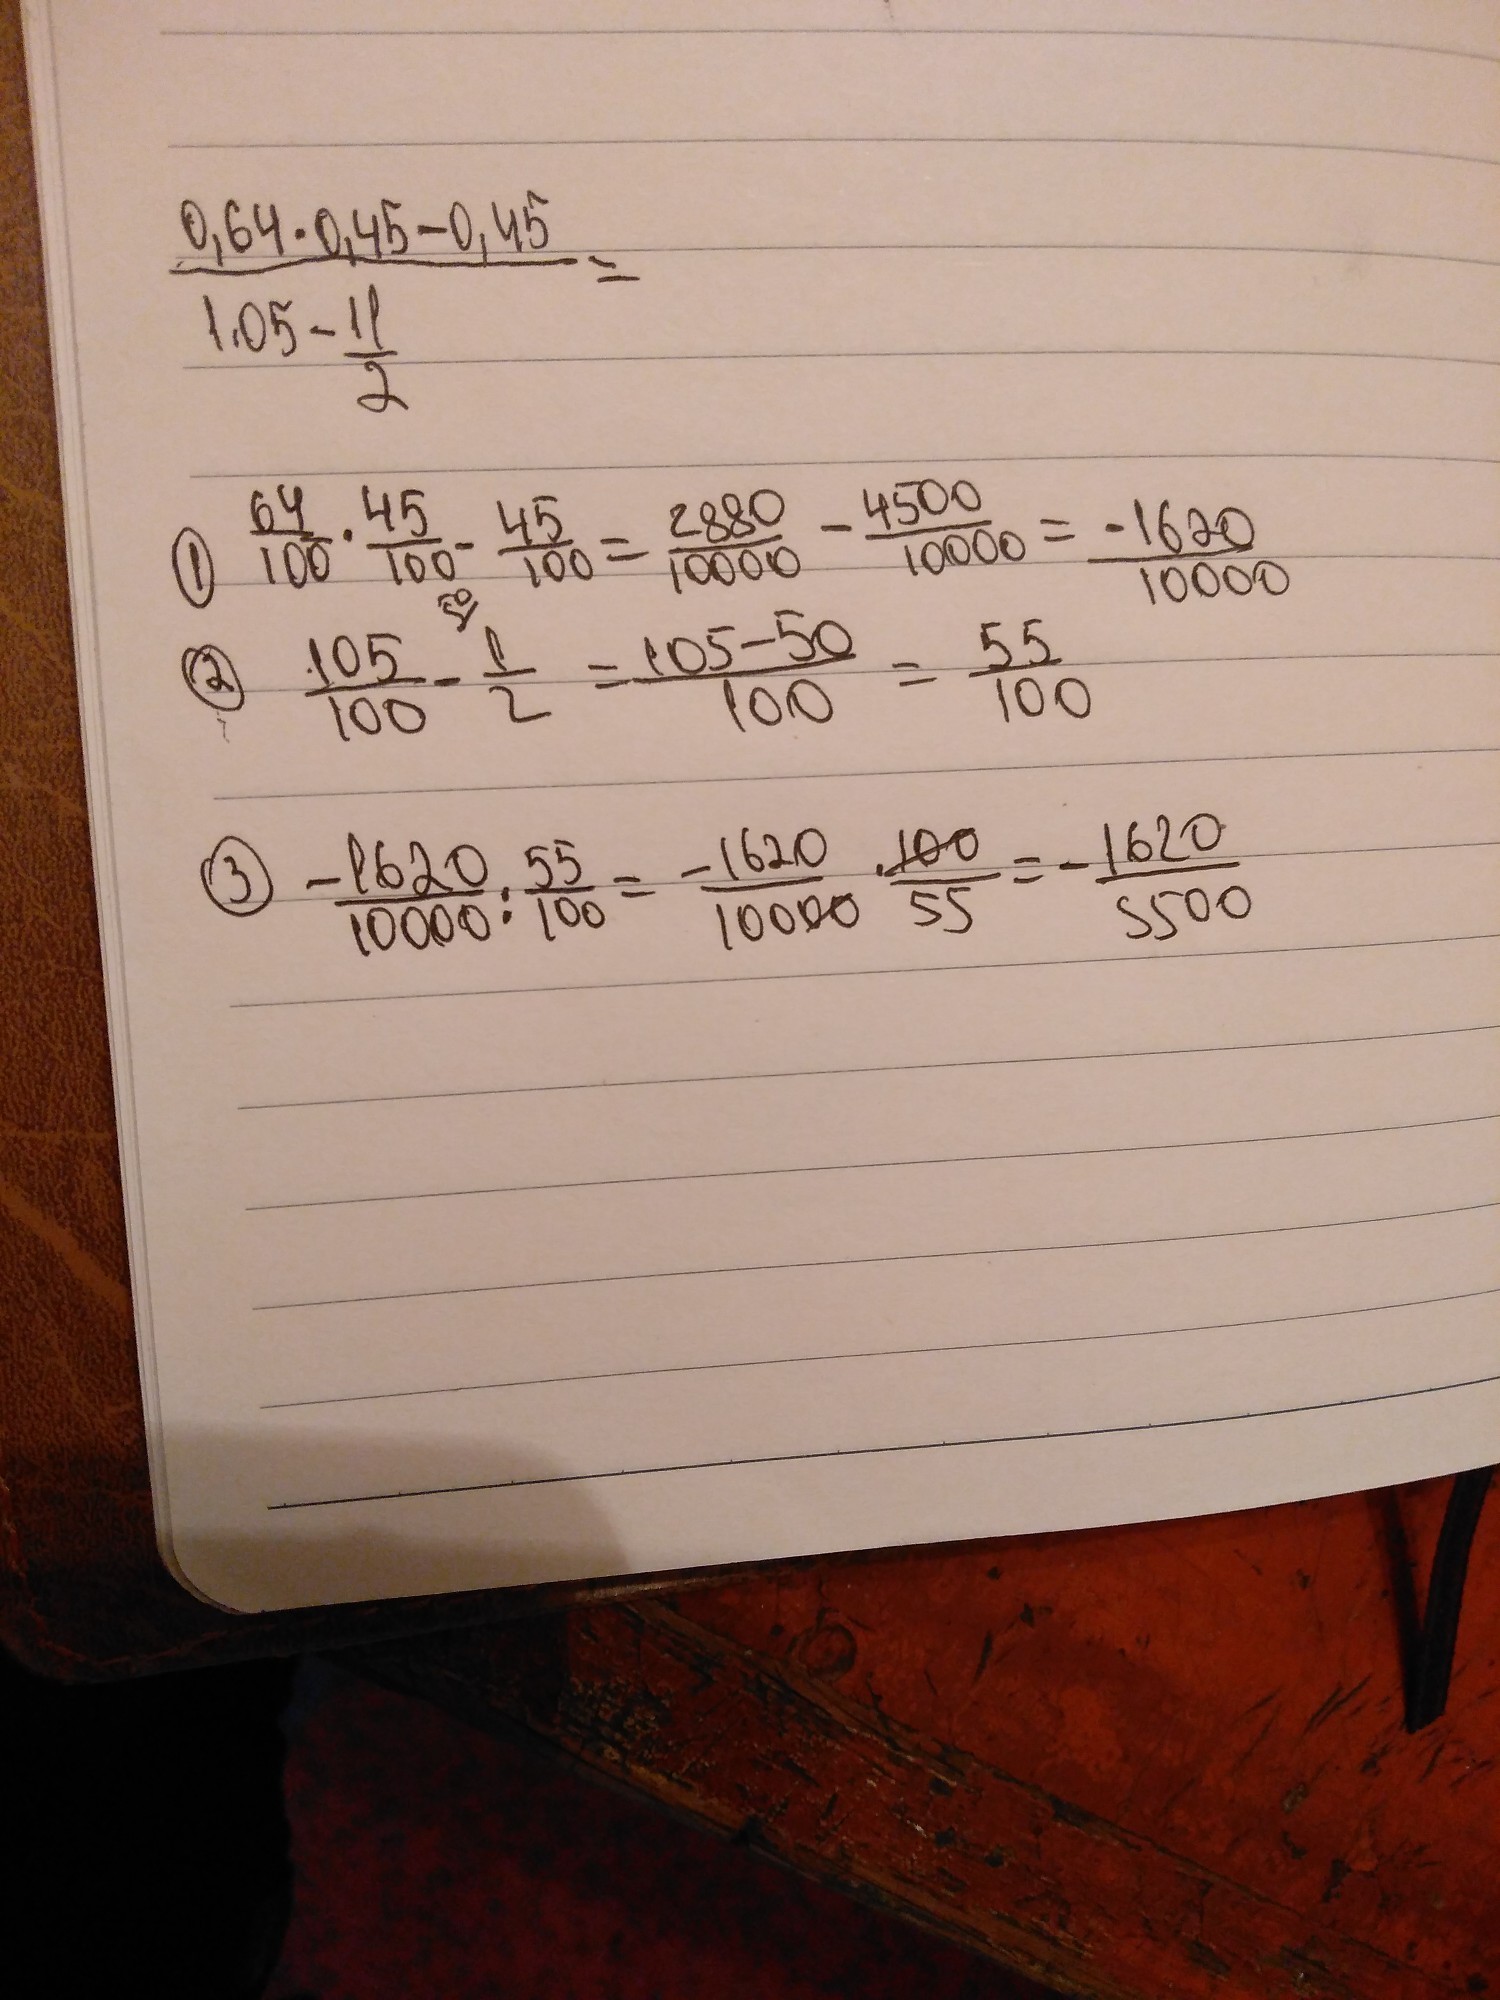 0,64·0,45-0,45
=
1.05-11
2
① 64/100 · 45/100 - 45/100 = 2880/10000 - 4500/10000 = -1620/10000
50/
② 105/100 - 1/2 = 105-50/100 = 55/100
③ -1620/10000 : 55/100 = -1620/10000 · 100/55 = -1620/5500